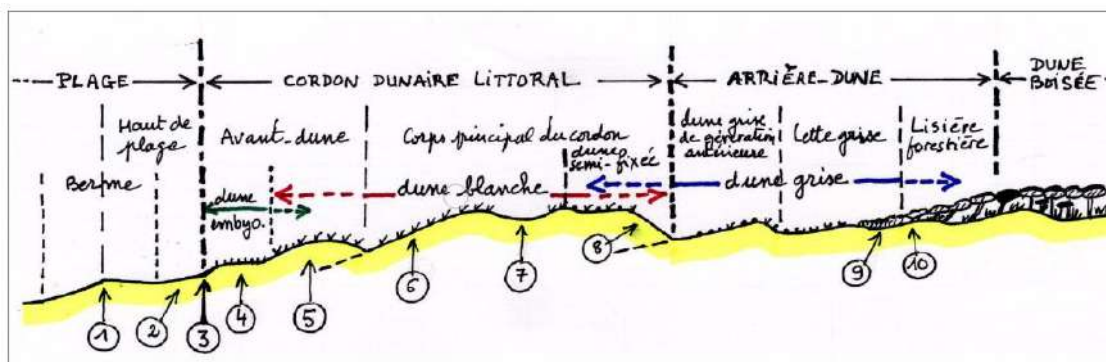 PLAGE
CORDON DUNAIRE LITTORAL
ARRIÈRE-DUNE
DUNE
BOISÉE
Haut de
plage
Berme
Avant-dune
Corps principal du cordon
dune
semi-fixée
dune grise
de génération
antérieure
Lette grise
Lisière
forestière
dune
embyo.
dune blanche
dune grise
1
2
3
4
5
6
7
8
9
10